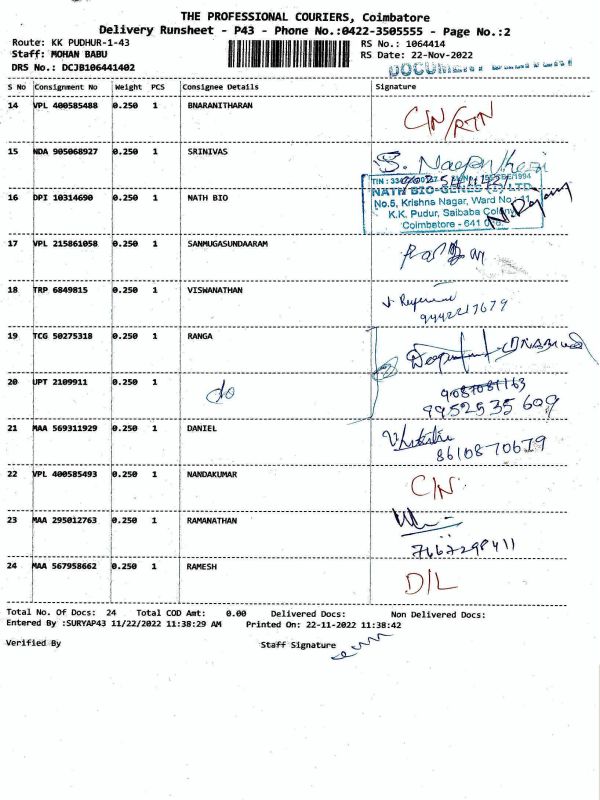 THE PROFESSIONAL COURIERS, Coimbatore
Delivery Runsheet - P43 - Phone No.:0422-3505555 - Page No.:2
Route: KK PUDHUR-1-43 RS No.: 1064414
Staff: MOHAN BABU RS Date: 22-Nov-2022
DRS No.: DCJB106441402
S No Consignment No Weight PCS Consignee Details Signature
14 VPL 400585488 0.250 1 BNARANITHARAN C/N/RTN
15 NDA 905068927 0.250 1 SRINIVAS S.
16 DPI 10314690 0.250 1 NATH BIO
NATH BIO-GENES (I) LTD
No.5, Krishna Nagar, Ward No.
K.K. Pudur, Saibaba Colony
Coimbatore - 641
17 VPL 215861058 0.250 1 SANMUGASUNDAARAM
18 TRP 6849815 0.250 1 VISWANATHAN
9442217679
19 TCG 50275318 0.250 1 RANGA
20 UPT 2109911 0.250 1 do
9087081163
9952535609
21 MAA 569311929 0.250 1 DANIEL
8610870679
22 VPL 400585493 0.250 1 NANDAKUMAR C/N
23 MAA 295012763 0.250 1 RAMANATHAN
7667298411
24 MAA 567958662 0.250 1 RAMESH D/L
Total No. Of Docs: 24 Total COD Amt: 0.00 Delivered Docs: Non Delivered Docs:
Entered By :SURYAP43 11/22/2022 11:38:29 AM Printed On: 22-11-2022 11:38:42
Verified By Staff Signature